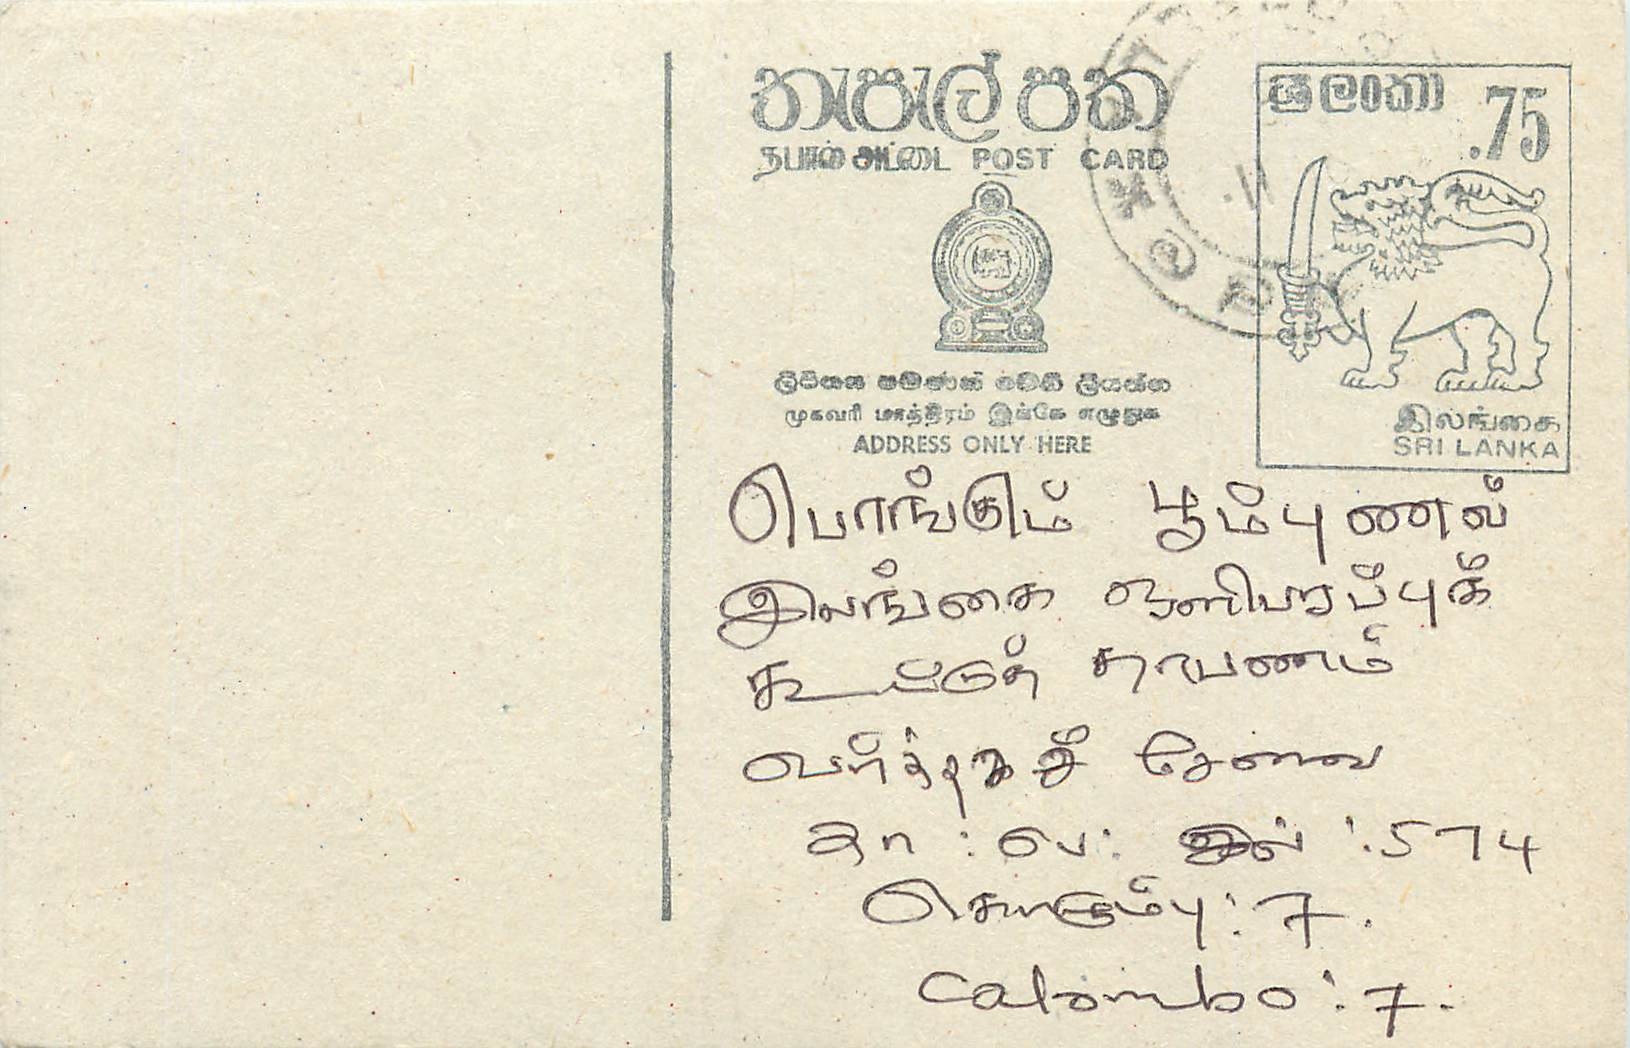 තැපැල් පත
தபால் அட்டை POST CARD
ශ්‍රී ලංකා .75
ලිපිනය පමණක් මෙහි ලියන්න
முகவரி மாத்திரம் இங்கே எழுதுக
ADDRESS ONLY HERE
இலங்கை
SRI LANKA
பொங்கும் பூம்புணல்
இலங்கை ஒளிபரப்புக்
கூட்டுத்
சேவை
த : பெ : இல் : 574
கொழும்பு : 7.
Colombo : 7.